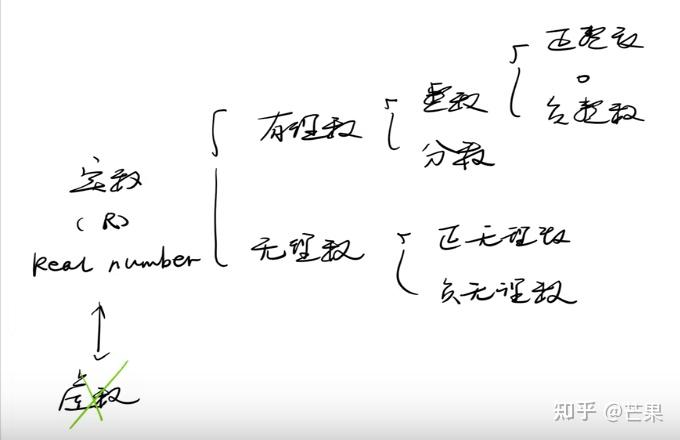 实数
(R)
Real number
有理数
整数
正整数
0
负整数
分数
无理数
正无理数
负无理数
虚数
知乎 @芒果